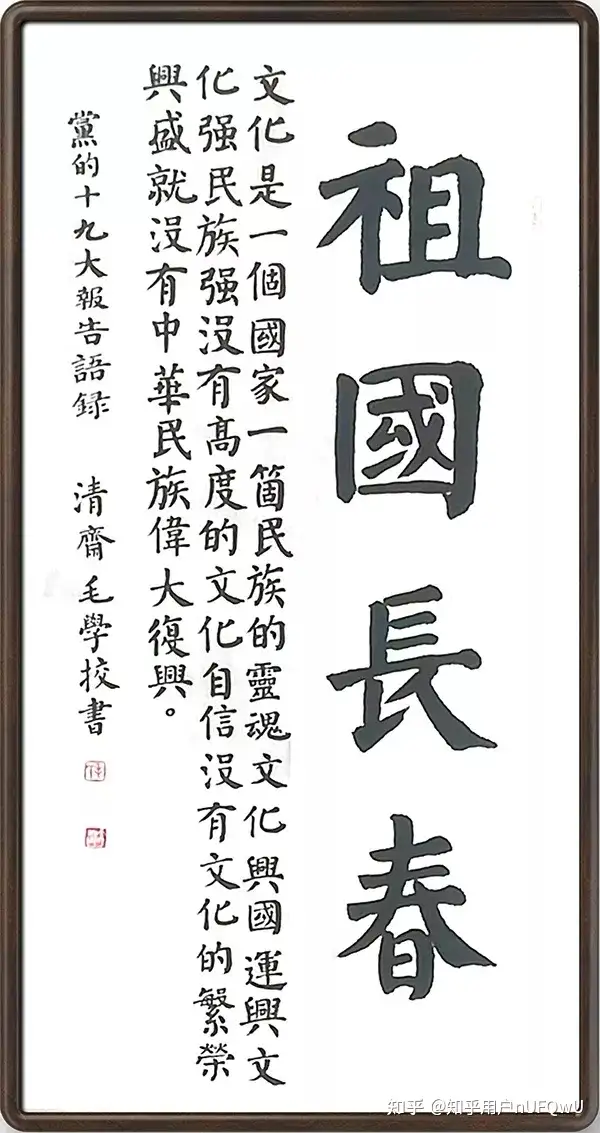 祖國長春
文化是一個國家一箇民族的靈魂文化興國運興文
化强民族强沒有高度的文化自信沒有文化的繁榮
興盛就沒有中華民族偉大復興。
黨的十九大報告語録 清齋毛學挍書
知乎 @知乎用户nUEQwU